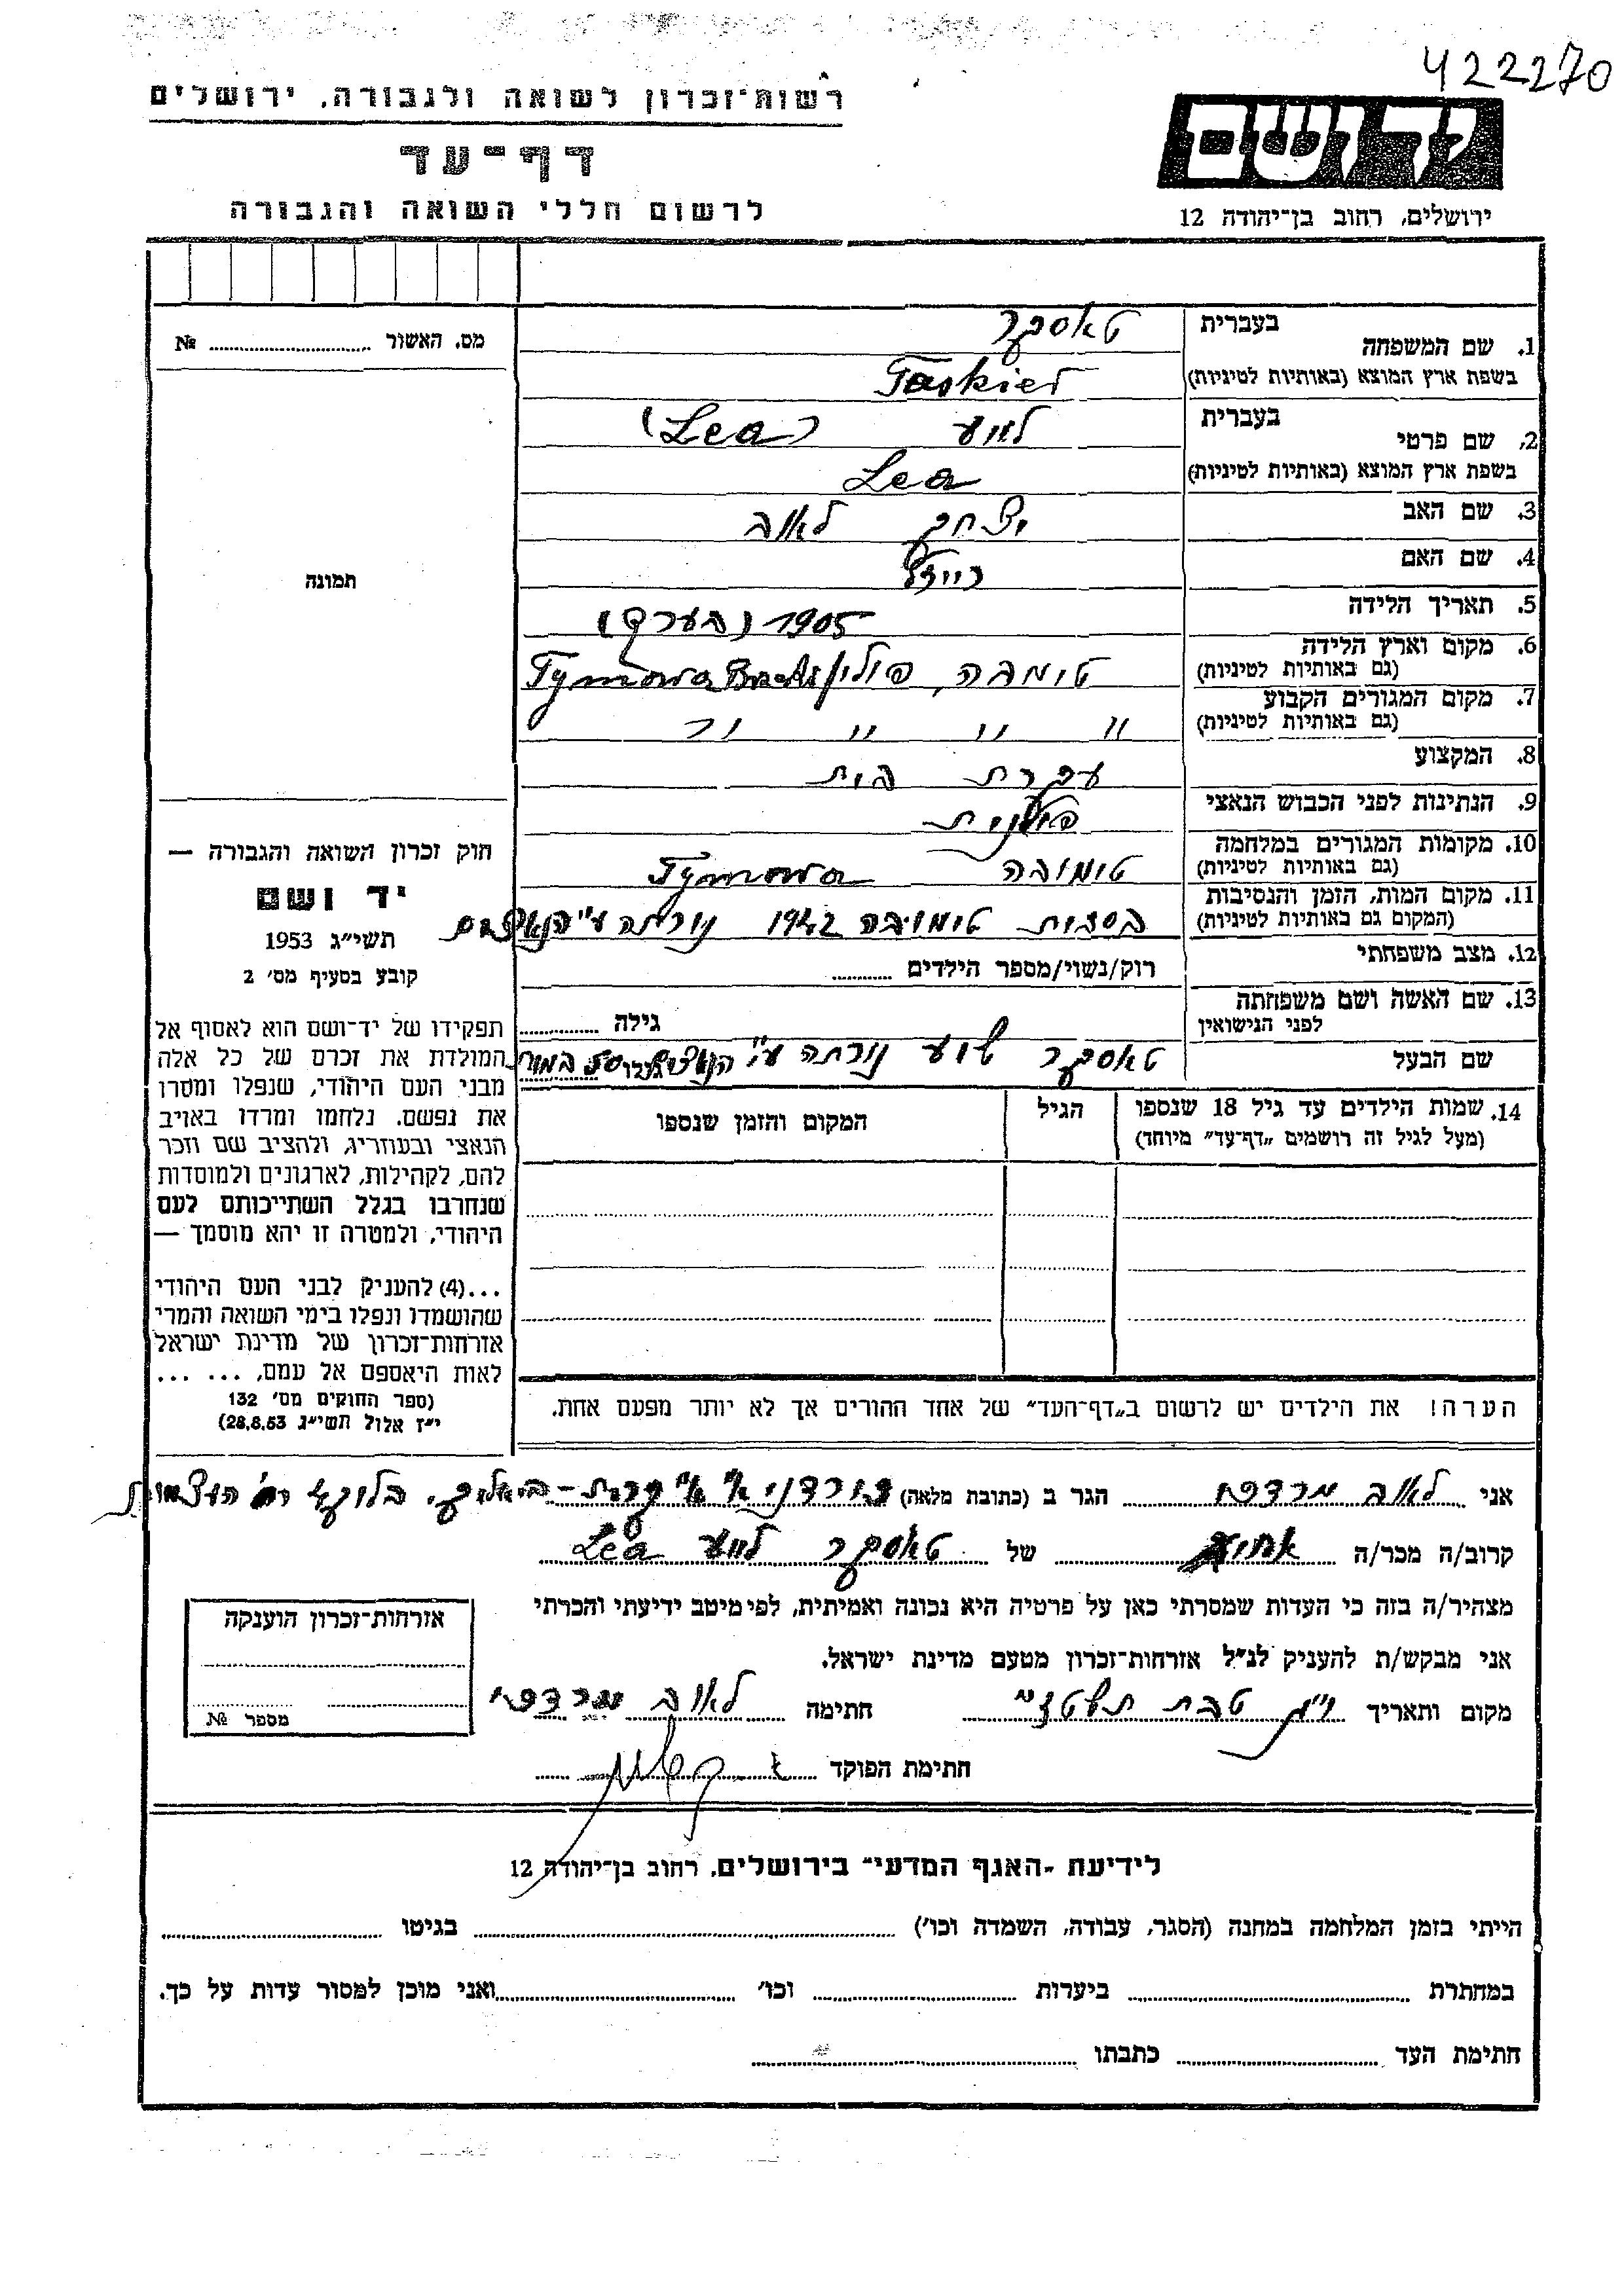 422270
רשות־זכרון לשואה ולגבורה, ירושלים
דף־עד
לרשום חללי השואה והגבורה
יד ושם
ירושלים, רחוב בן־יהודה 12
מס. האשור № 
תמונה
חוק זכרון השואה והגבורה —
יד ושם
תשי״ג 1953
קובע בסעיף מס׳ 2
תפקידו של יד־ושם הוא לאסוף אל
המולדת את זכרם של כל אלה
מבני העם היהודי, שנפלו ומסרו
את נפשם, נלחמו ומרדו באויב
הנאצי ובעוזריו, ולהציב שם וזכר
להם, לקהילות, לארגונים ולמוסדות
שנחרבו בגלל השתייכותם לעם
היהודי, ולמטרה זו יהא מוסמך —
...(4) להעניק לבני העם היהודי
שהושמדו ונפלו בימי השואה והמרי
אזרחות־זכרון של מדינת ישראל
לאות היאספם אל עמם, ... ...
(ספר החוקים מס׳ 132
י״ז אלול תשי״ג 28.8.53)
1. שם המשפחה בעברית טאסקער
בשפת ארץ המוצא (באותיות לטיניות) Taskier
2. שם פרטי בעברית לאע (Lea)
בשפת ארץ המוצא (באותיות לטיניות) Lea
3. שם האב יצחק לאוב
4. שם האם ריידל
5. תאריך הלידה 1905 (בערך)
6. מקום וארץ הלידה (גם באותיות לטיניות) טימבה, פולין Tymowa
7. מקום המגורים הקבוע (גם באותיות לטיניות) " " " "
8. המקצוע עקרת בית
9. הנתינות לפני הכבוש הנאצי פולנית
10. מקומות המגורים במלחמה (גם באותיות לטיניות) טימובה Tymowa
11. מקום המות, הזמן והנסיבות (המקום גם באותיות לטיניות) בסבות טימובה 1942 נורתה ע״י הנאצים
12. מצב משפחתי רוק/נשוי/מספר הילדים
13. שם האשה ושם משפחתה לפני הנישואין גילה
שם הבעל טאסקער נורתה ע״י
14. שמות הילדים עד גיל 18 שנספו (מעל לגיל זה רושמים „דף־עד״ מיוחד) הגיל המקום והזמן שנספו
הערה! את הילדים יש לרשום ב„דף־העד״ של אחד ההורים אך לא יותר מפעם אחת.
אני לאוב מרדכי הגר ב (כתובת מלאה) קרית־ביאליק,
קרוב/ה מכר/ה אחיה של טאסקער לאע Lea
מצהיר/ה בזה כי העדות שמסרתי כאן על פרטיה היא נכונה ואמיתית, לפי מיטב ידיעתי והכרתי
אני מבקש/ת להעניק לנ״ל אזרחות־זכרון מטעם מדינת ישראל.
מקום ותאריך טבת תשט״ז חתימה לאוב מרדכי
חתימת הפוקד
אזרחות־זכרון הוענקה
מספר №
לידיעת „האגף המדעי״ בירושלים, רחוב בן־יהודה 12
הייתי בזמן המלחמה במחנה (הסגר, עבודה, השמדה וכו׳) בגיטו
במחתרת ביערות וכו׳ ואני מוכן למסור עדות על כך.
חתימת העד כתבתו